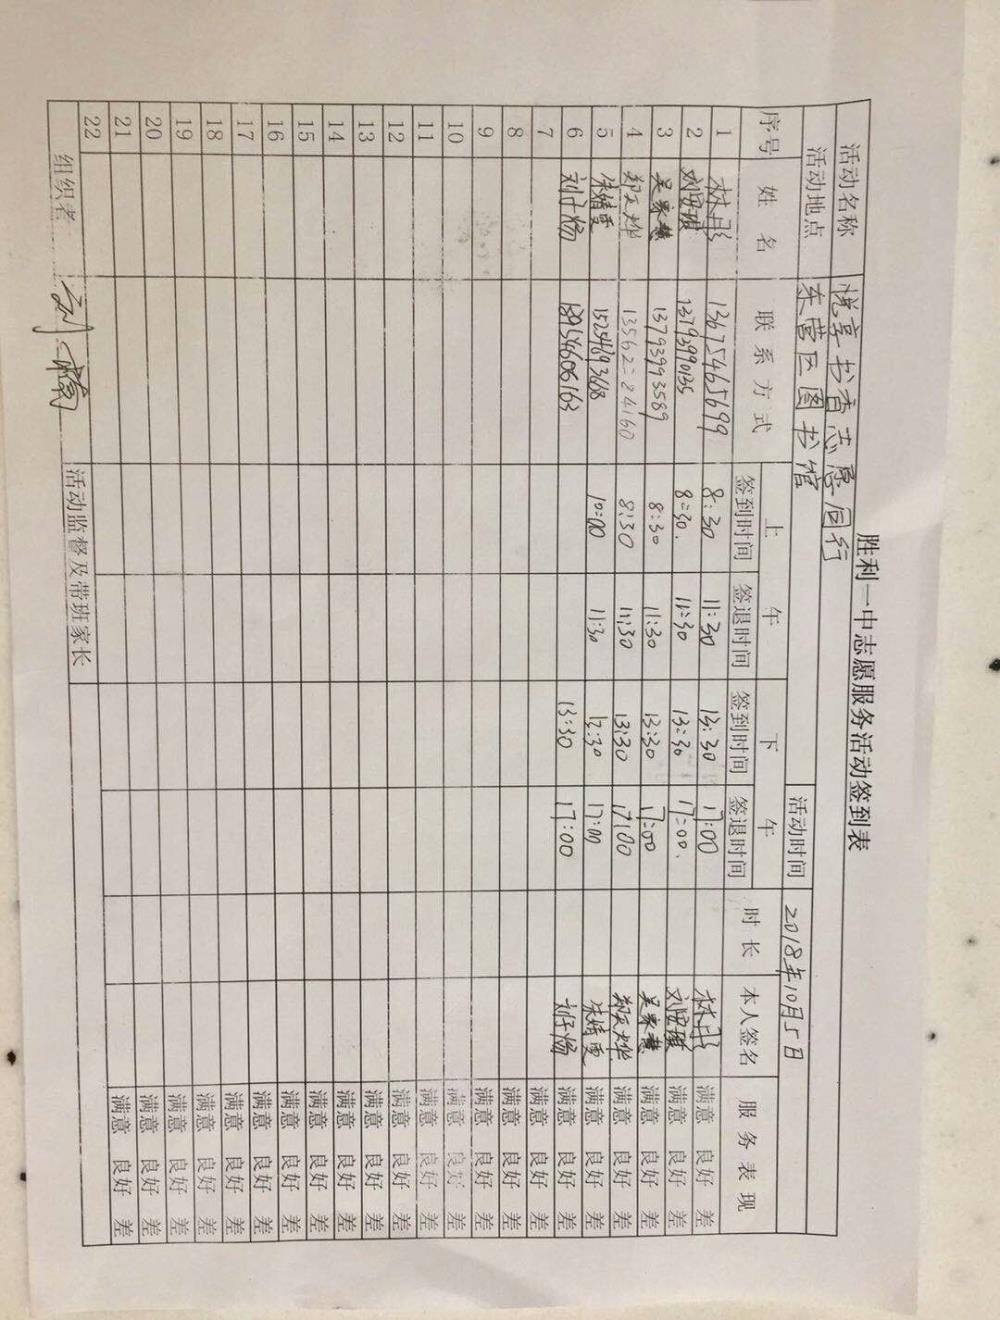 胜利一中志愿服务活动签到表
活动名称 悦享书香志愿同行
活动地点 东营区图书馆 活动时间 2018年10月5日
序号 姓名 联系方式 上午 下午 时长 本人签名 服务表现
签到时间 签退时间 签到时间 签退时间
1 林彤 13675465699 8:30 11:30 13:30 17:00 林彤 满意 良好 差
2 13793990135 8:30. 11:30 13:30 17:00. 满意 良好 差
3 吴家慧 13793993589 8:30 11:30 13:30 17:00 吴家慧 满意 良好 差
4 13562284160 8:30 11:30 13:30 17:00 满意 良好 差
5 朱婧雯 15254693668 10:00 11:30 13:30 17:00 朱婧雯 满意 良好 差
6 刘子杨 18954606163 13:30 17:00 刘子杨 满意 良好 差
7 满意 良好 差
8 满意 良好 差
9 满意 良好 差
10 满意 良好 差
11 满意 良好 差
12 满意 良好 差
13 满意 良好 差
14 满意 良好 差
15 满意 良好 差
16 满意 良好 差
17 满意 良好 差
18 满意 良好 差
19 满意 良好 差
20 满意 良好 差
21 满意 良好 差
22
组织者 活动监督及带班家长